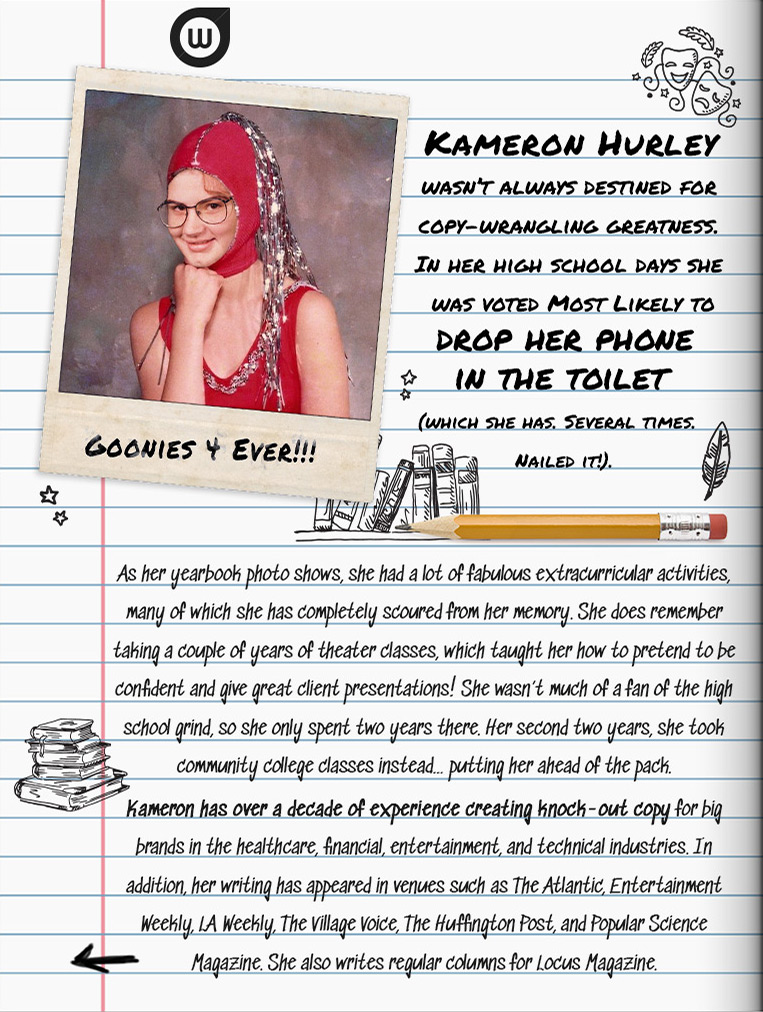 W
KAMERON HURLEY
WASN'T ALWAYS DESTINED FOR
COPY-WRANGLING GREATNESS.
IN HER HIGH SCHOOL DAYS SHE
WAS VOTED MOST LIKELY TO
DROP HER PHONE
IN THE TOILET
(WHICH SHE HAS. SEVERAL TIMES.
NAILED IT!).
GOONIES 4 EVER!!!
As her yearbook photo shows, she had a lot of fabulous extracurricular activities,
many of which she has completely scoured from her memory. She does remember
taking a couple of years of theater classes, which taught her how to pretend to be
confident and give great client presentations! She wasn't much of a fan of the high
school grind, so she only spent two years there. Her second two years, she took
community college classes instead... putting her ahead of the pack.
Kameron has over a decade of experience creating knock-out copy for big
brands in the healthcare, financial, entertainment, and technical industries. In
addition, her writing has appeared in venues such as The Atlantic, Entertainment
Weekly, LA Weekly, The Village Voice, The Huffington Post, and Popular Science
Magazine. She also writes regular columns for Locus Magazine.